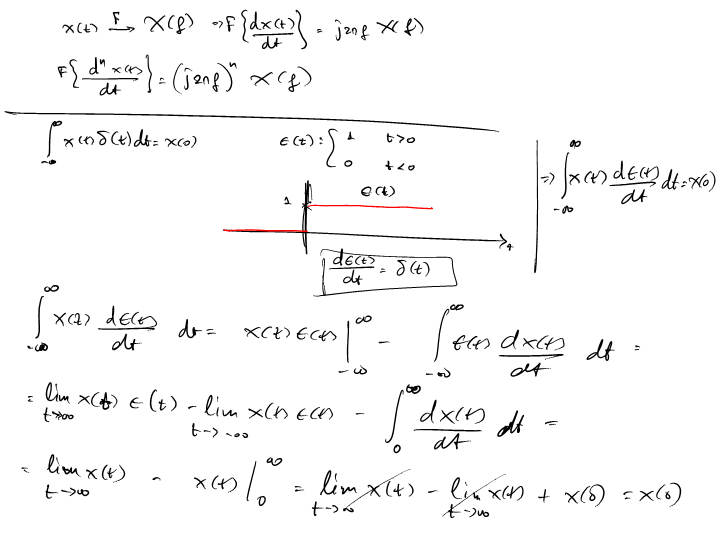 x(t) F→ X(f) ⇒ F{dx(t)/dt} = j2πf X(f)
F{dⁿ x(t)/dt} = (j2πf)ⁿ X(f)
∫_{-∞}^{∞} x(t) δ(t) dt = x(0)
ϵ(t) : { 1 t>0
0 t<0
⇒ ∫_{-∞}^{∞} x(t) dϵ(t)/dt dt = x(0)
1 ϵ(t)
t
dϵ(t)/dt = δ(t)
∫_{-∞}^{∞} x(t) dϵ(t)/dt dt = x(t) ϵ(t) |_{-∞}^{∞} - ∫_{-∞}^{∞} ϵ(t) dx(t)/dt dt =
= lim_{t→∞} x(t) ϵ(t) - lim_{t→-∞} x(t) ϵ(t) - ∫_{0}^{∞} dx(t)/dt dt =
= lim_{t→∞} x(t) - x(t) |_{0}^{∞} = lim_{t→∞} x(t) - lim_{t→∞} x(t) + x(0) = x(0)